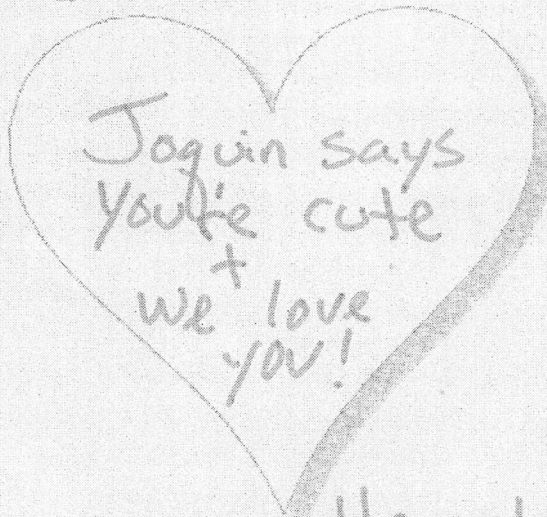 Joquin says
you're cute
+
we love
you!